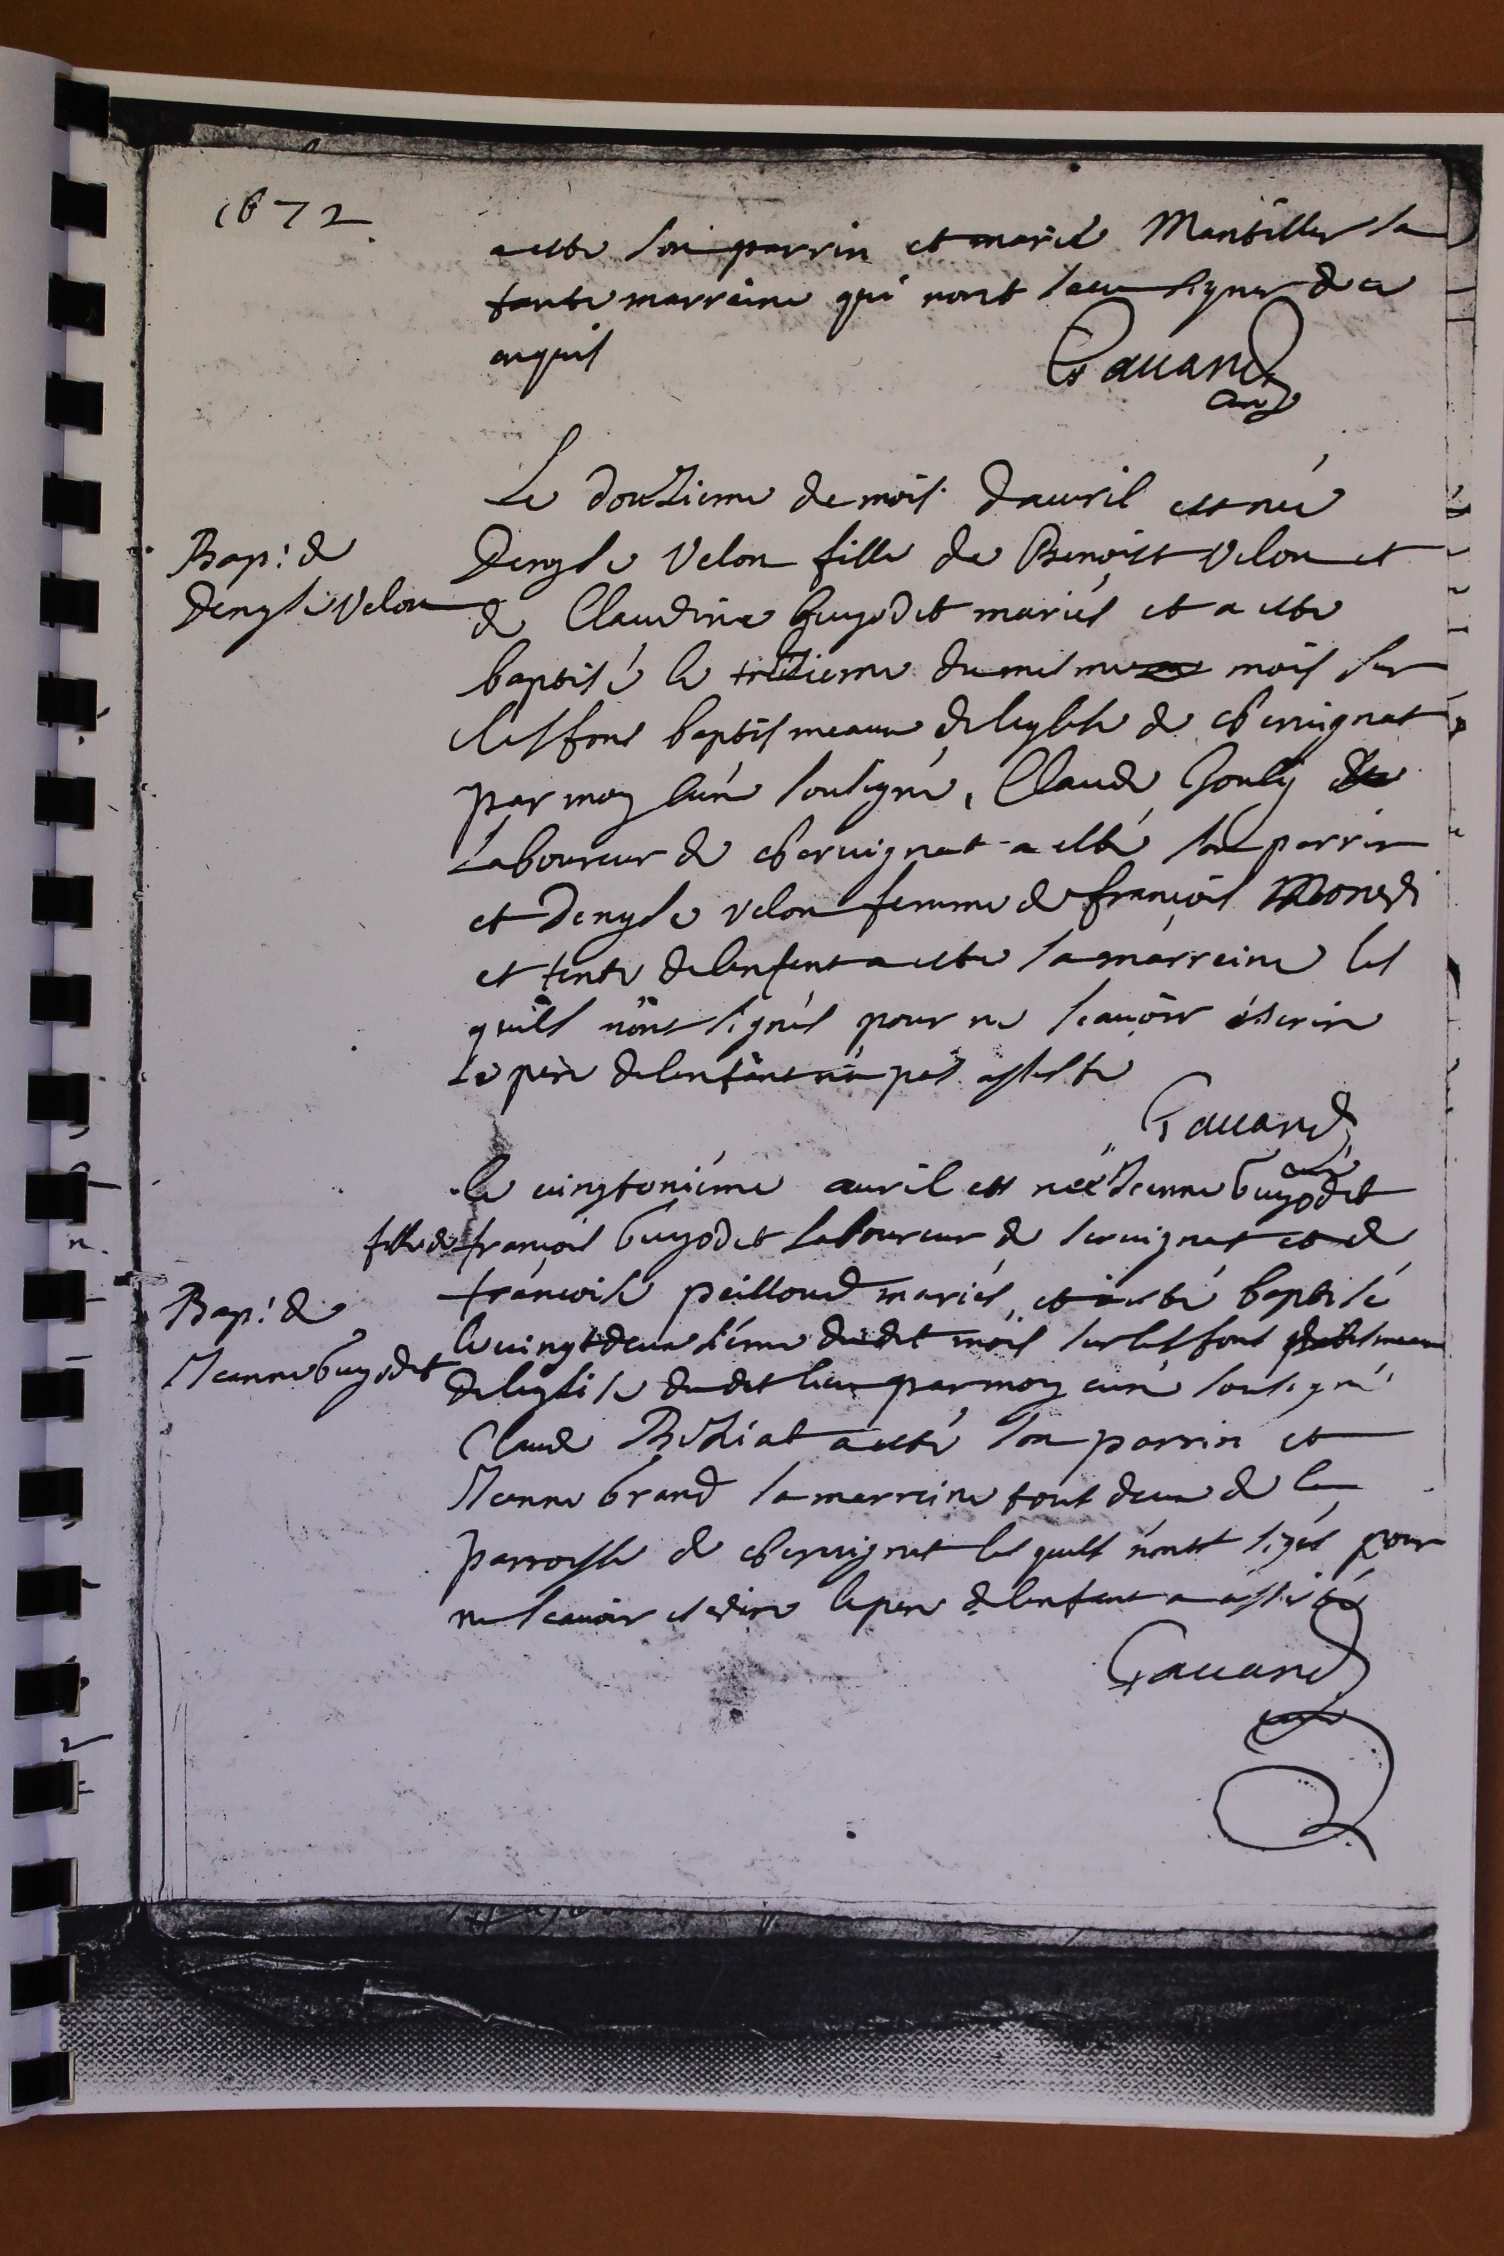 1672.
a esté son parrin et marie Mantillet sa
tante marreine qui nont sceu signer de ce
enquis
Gauand
curé
Le douzieme de mois dauril est née
Bap! de
Denyse Velon
Denyse Velon fille de Benoist Velon et
de Claudine Guyodet mariés et a esté
baptisé le treizieme du mesme mois sur
les fons baptismeaux de leglise de cheruignat
par moy curé soussigné, Claude Gouly
Laboureur de cheruignat a esté son parrin
et Denyse velon femme de françois
et tente de lenfent a esté sa marreine les
quils nont signés pour ne scauoir escrire
Le pere de lenfant na pas assisté
Gauand
curé
le uingtunième auril est née Jeanne Guyodet
fille de françois Guyodet Laboureur de seruignat et de
Bap! de
Jeanne Guyodet
françoise peilloud mariés, et a esté baptisé
le uingtdeuxsiéme dudit mois sur les fons
de leglise dudit lieu par moy curé soussigné
Claude Beziat a esté son parrin et
Jeanne Grand sa marreine tout deux de la
parroisse de cheruignat les quels nont signés pour
ne scauoir escrire le pere de lenfant a assisté
Gauand
curé